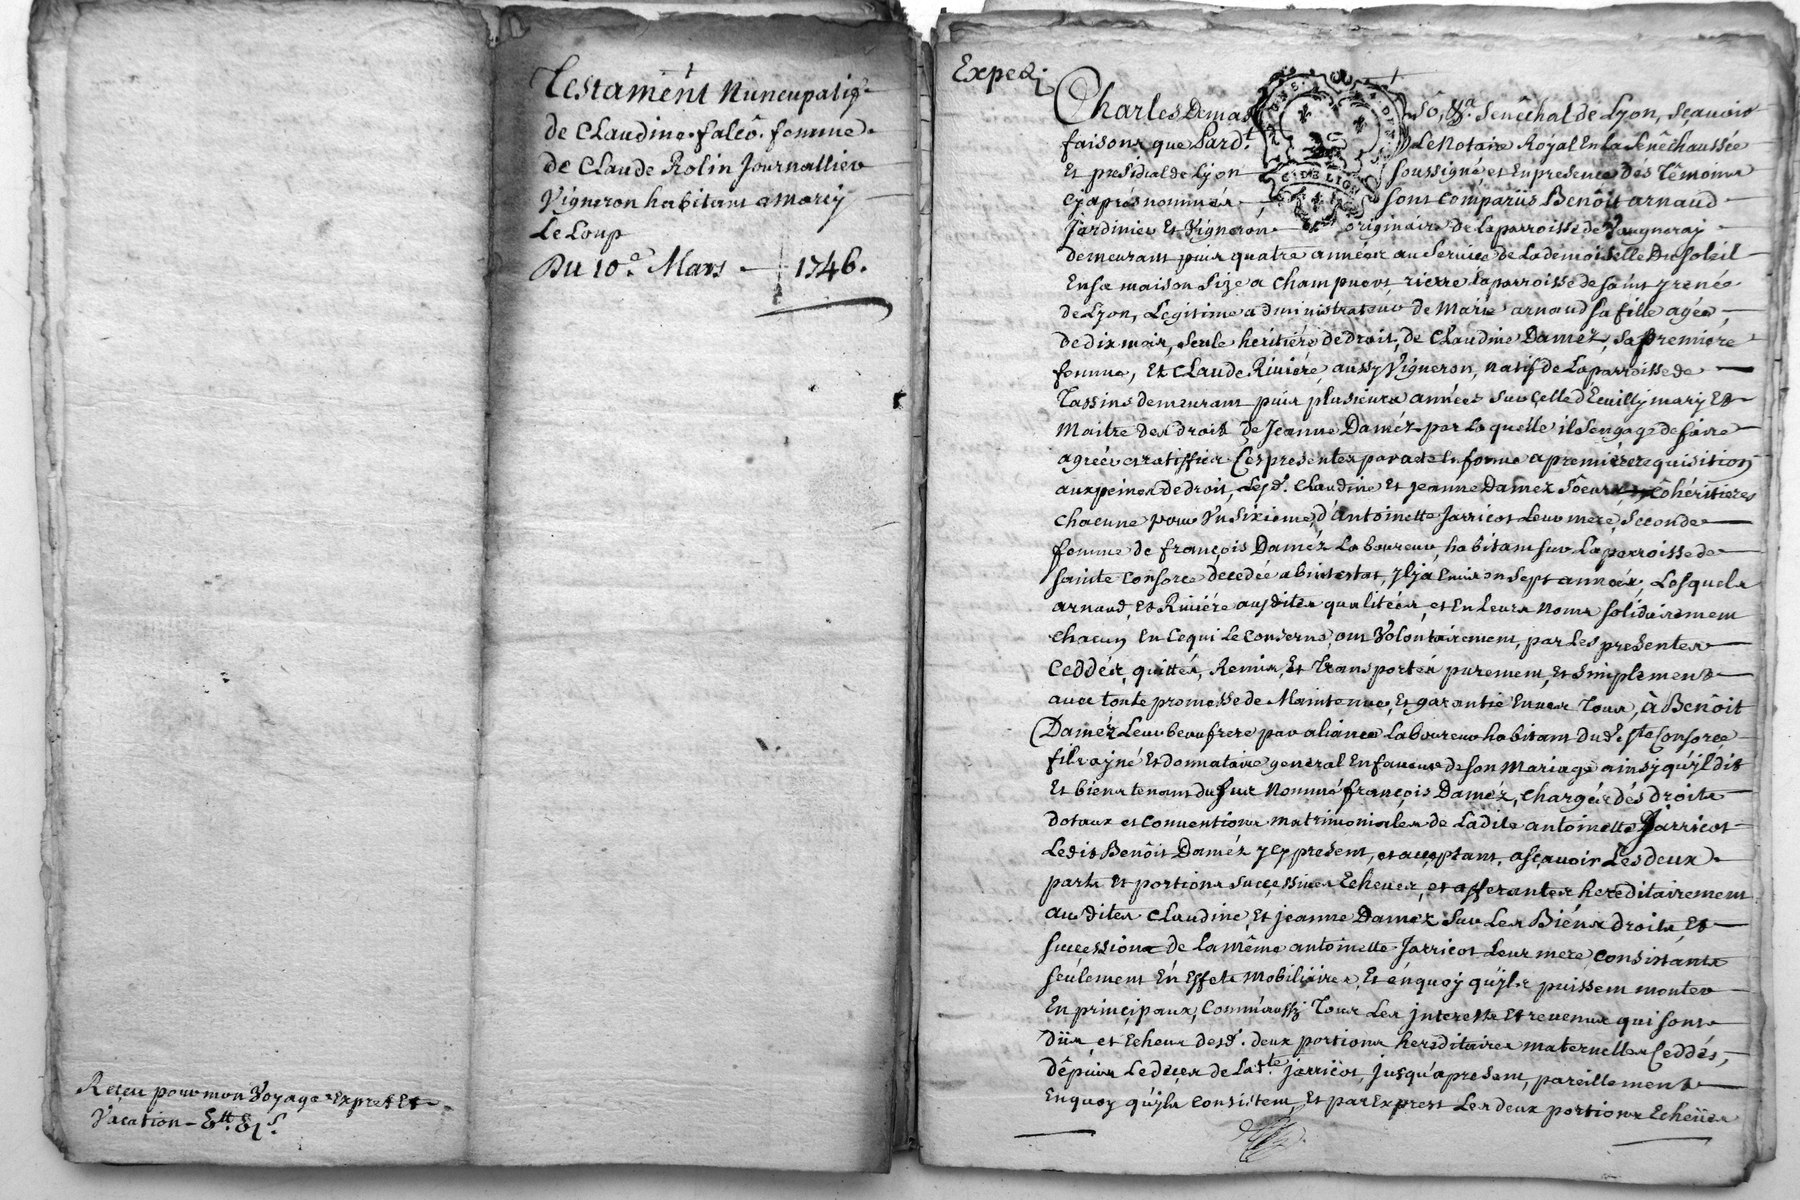 Testament Nuncupatif
de Claudine falcô femme
de Claude Rolin Journallier
Vigneron habitant a Marcy
Le Loup
Du 10e. Mars 1746.
Receu pour mon Voyage Expres Et
Vacation
Exped.
Charles Demas Sénéchal de Lyon, Sçavoir
faisons que Pard.t Le Notaire Royal En la Sénêchaussée
Et presidial de Lyon soussigné, et En presence dés Têmoins
Cy aprés nommés, sont comparüs Benôit arnaud
Jardinier Et Vigneron originaire de La parroisse de Vaugneray
demeurant puis quatre années au service de La demoiselle Du Soleil
En sa maison size a Champvert, rierre La parroisse de Saint yrenée
de Lyon, Legitime administrateur de Marie arnaud sa fille agée,
de dix mois, seule heritiere de droit, de Claudine Daméz, sa premiere
femme, Et Claude Riviére, aussy Vigneron, natif de La parroisse de
Tassins demeurant puis plusieurs années sur Celle d'Ecully mary Et
Maitre des droits de Jeanne Daméz par Laquelle il s'engage de faire
agréer et ratiffier Ces presentes par acte En forme a premiere requisition
aux peines de droit, Lesd. Claudine Et Jeanne Daméz Sœurs Côheritieres
Chacune pour Un Sixieme, d'antoinette Jarricot Leur mere, Seconde
femme de françois Daméz Laboureur, habitant sur La parroisse de
Sainte Consorce decedée abintestat, yl ja Environ sept années, Lesquels
arnaud, Et Riviére ausdites qualitées, et En Leurs Noms solidairement
Chacun En Ce qui Le Conserne, ont Volontairement, par Les presentes
Ceddés, quittés, Remis, Et Transportés purement, Et simplement
avec toute promesse de Maintenue, Et garantie Envers Tous, à Benôit
Daméz Leur beaufrere par aliance Laboureur habitant Dud. Ste Consorce
fils ayné Et donnataire general En faveur de son Mariage ainsy qu'yl dit
Et biens tenant du sus Nommé françois Daméz, Chargés dés droits
dotaux et Conventions matrimoniales de Ladite antoinette Jarricot
Ledit Benôit Daméz ycy present, et acceptant, asçavoir Les deux
parts Et portions successives Echeues, et afferantes hereditairement
aus dites Claudine, Et Jeanne Daméz sur Les Biéns droits, Et
successions de La même antoinette Jarricot Leur mere, Consistants
seulement En Effets Mobiliaires, Et énquoy qu'yls puissent monter
En principaux, Comm'aussy Tous Les jnterests Et revenus qui sont
düs, et Echeus desd. deux portions hereditaires maternelles Ceddés,
dépuis Le deces de Lad.te Jarricot, jusqu'a present, pareillement
Enquoy qu'yls Consistent, Et par Exprest Les deux portions Echeües